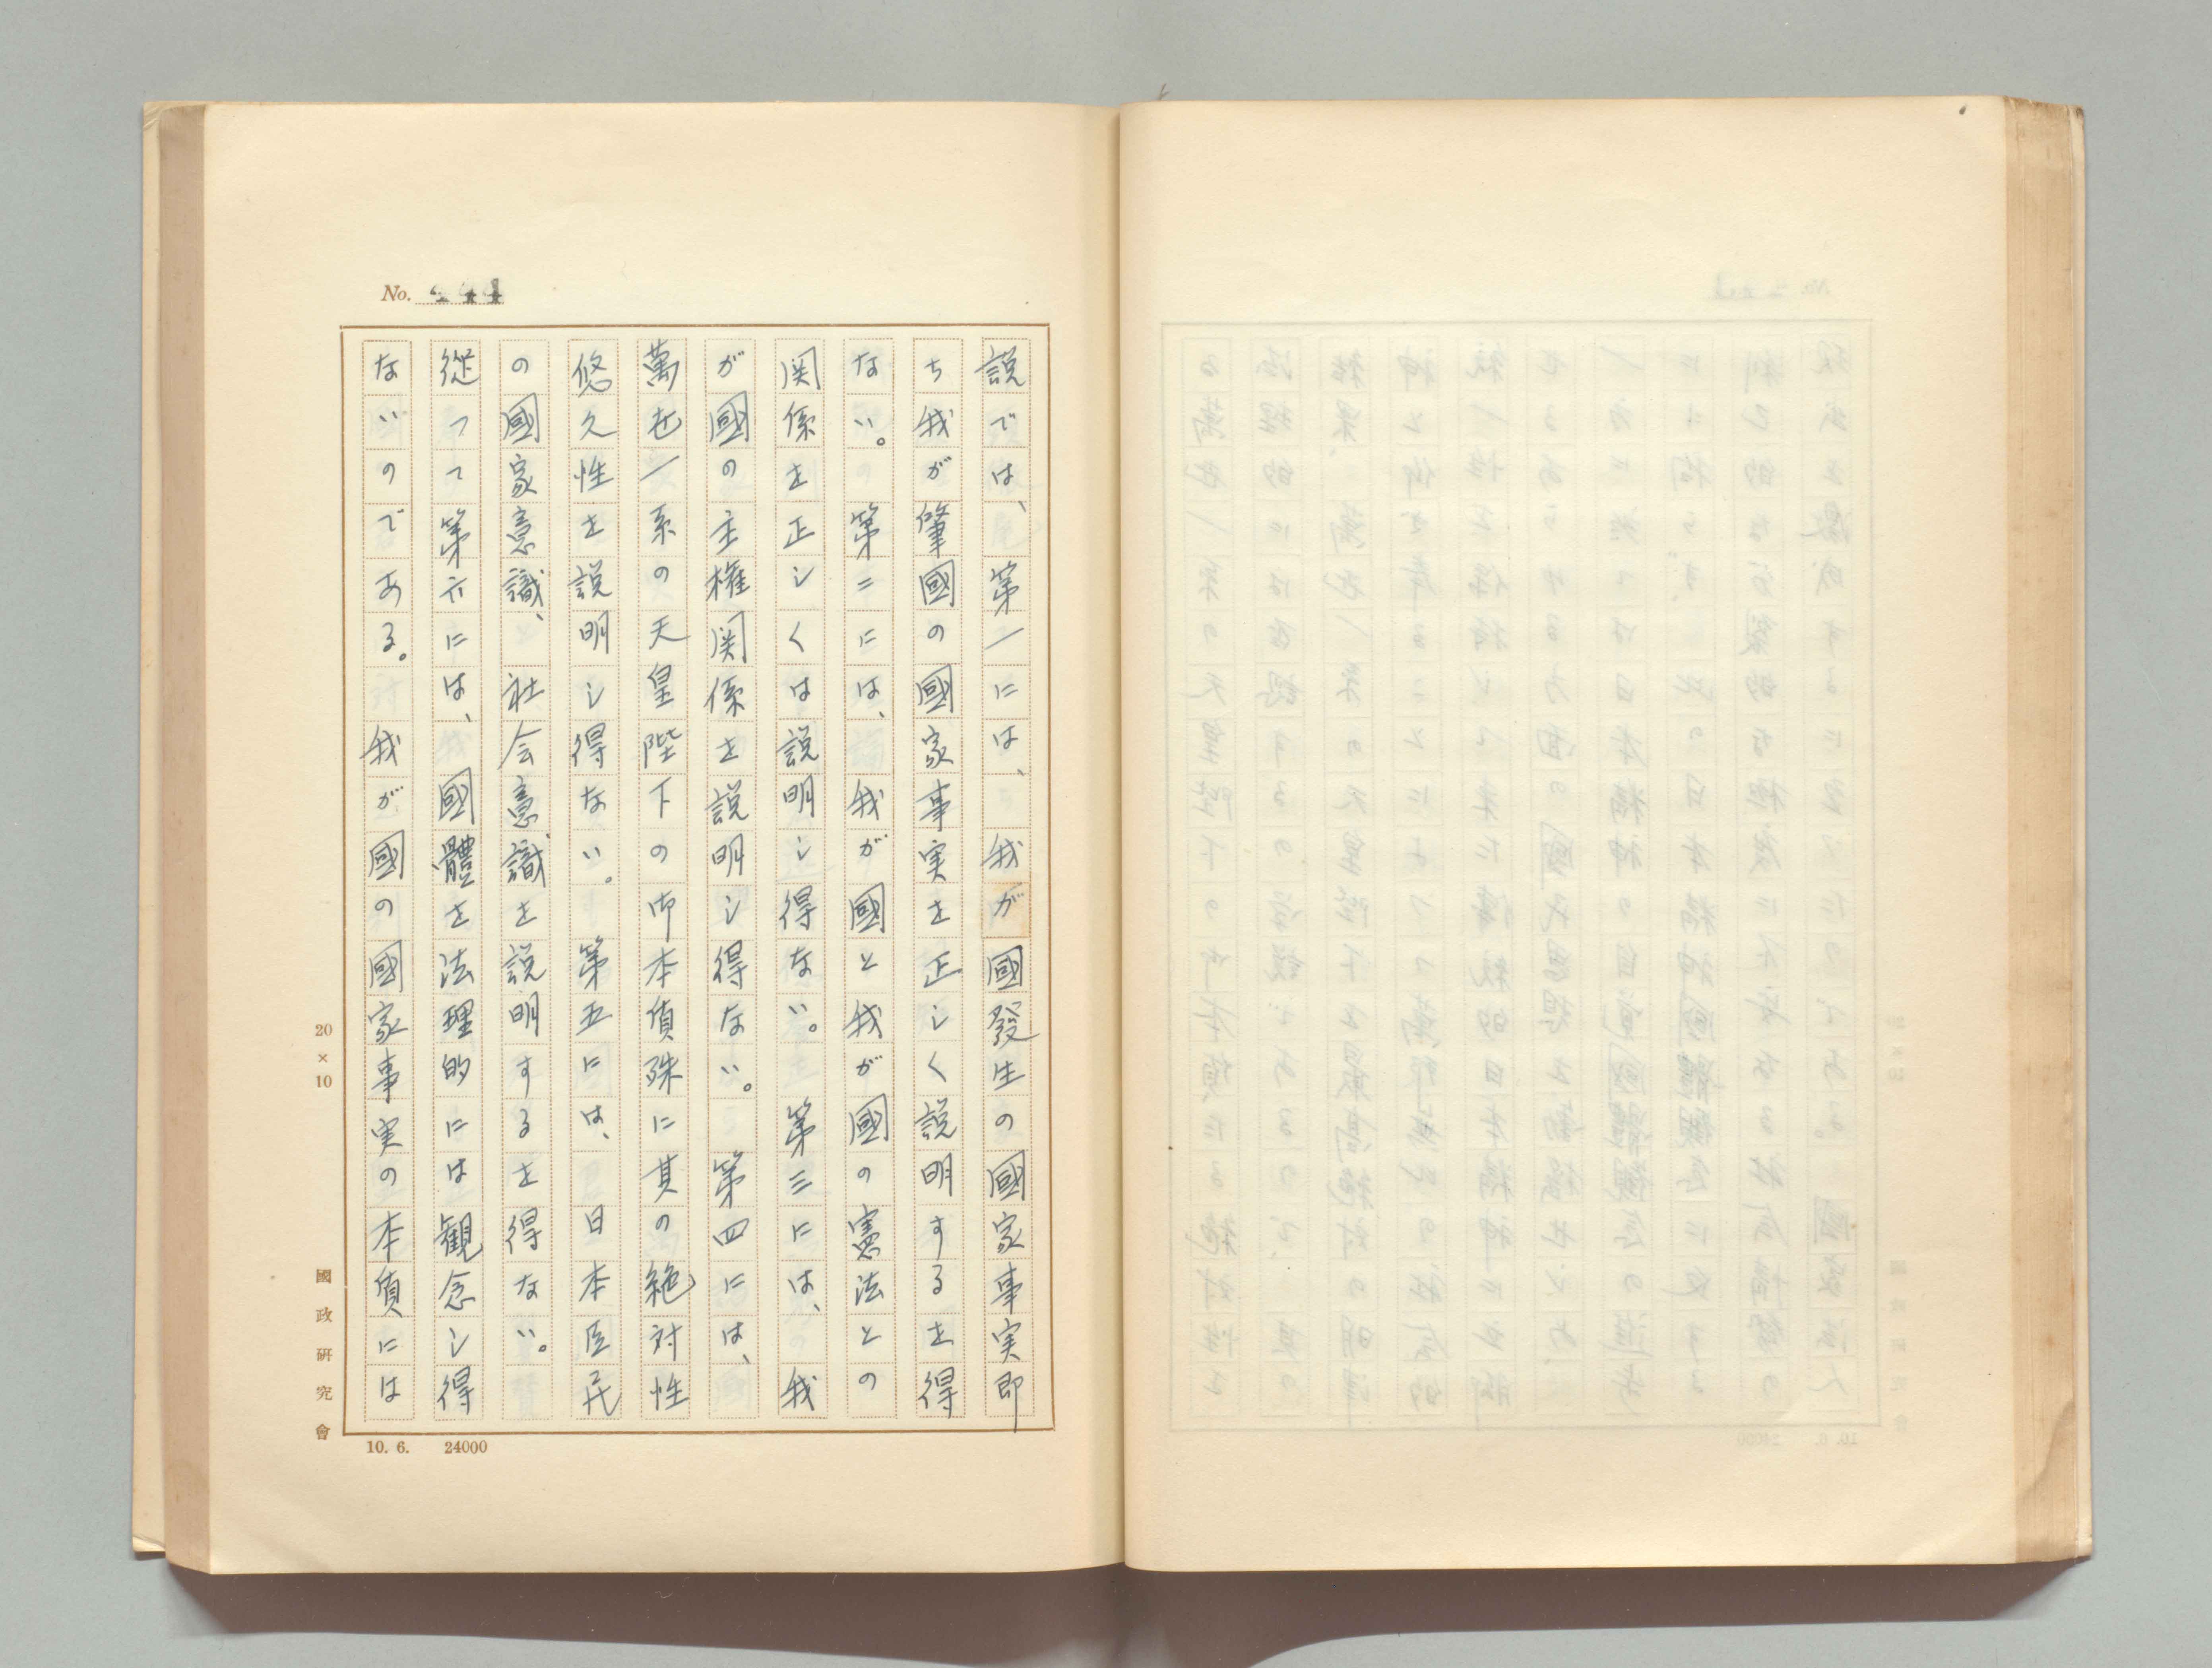 No. 244
説では、第一には、我が國發生の國家事実即
ち我が肇國の國家事実を正しく説明するを得
ない。第二には、我が國と我が國の憲法との
関係を正しくは説明し得ない。第三には、我
が國の主権関係を説明し得ない。第四には、
萬世一系の天皇陛下の御本質殊に其の絶対性
悠久性を説明し得ない。第五には、日本臣民
の國家意識、社会意識を説明するを得ない。
從つて第六には、國體を法理的には観念し得
ないのである。我が國の國家事実の本質には
20×10
國政研究會
10. 6. 24000